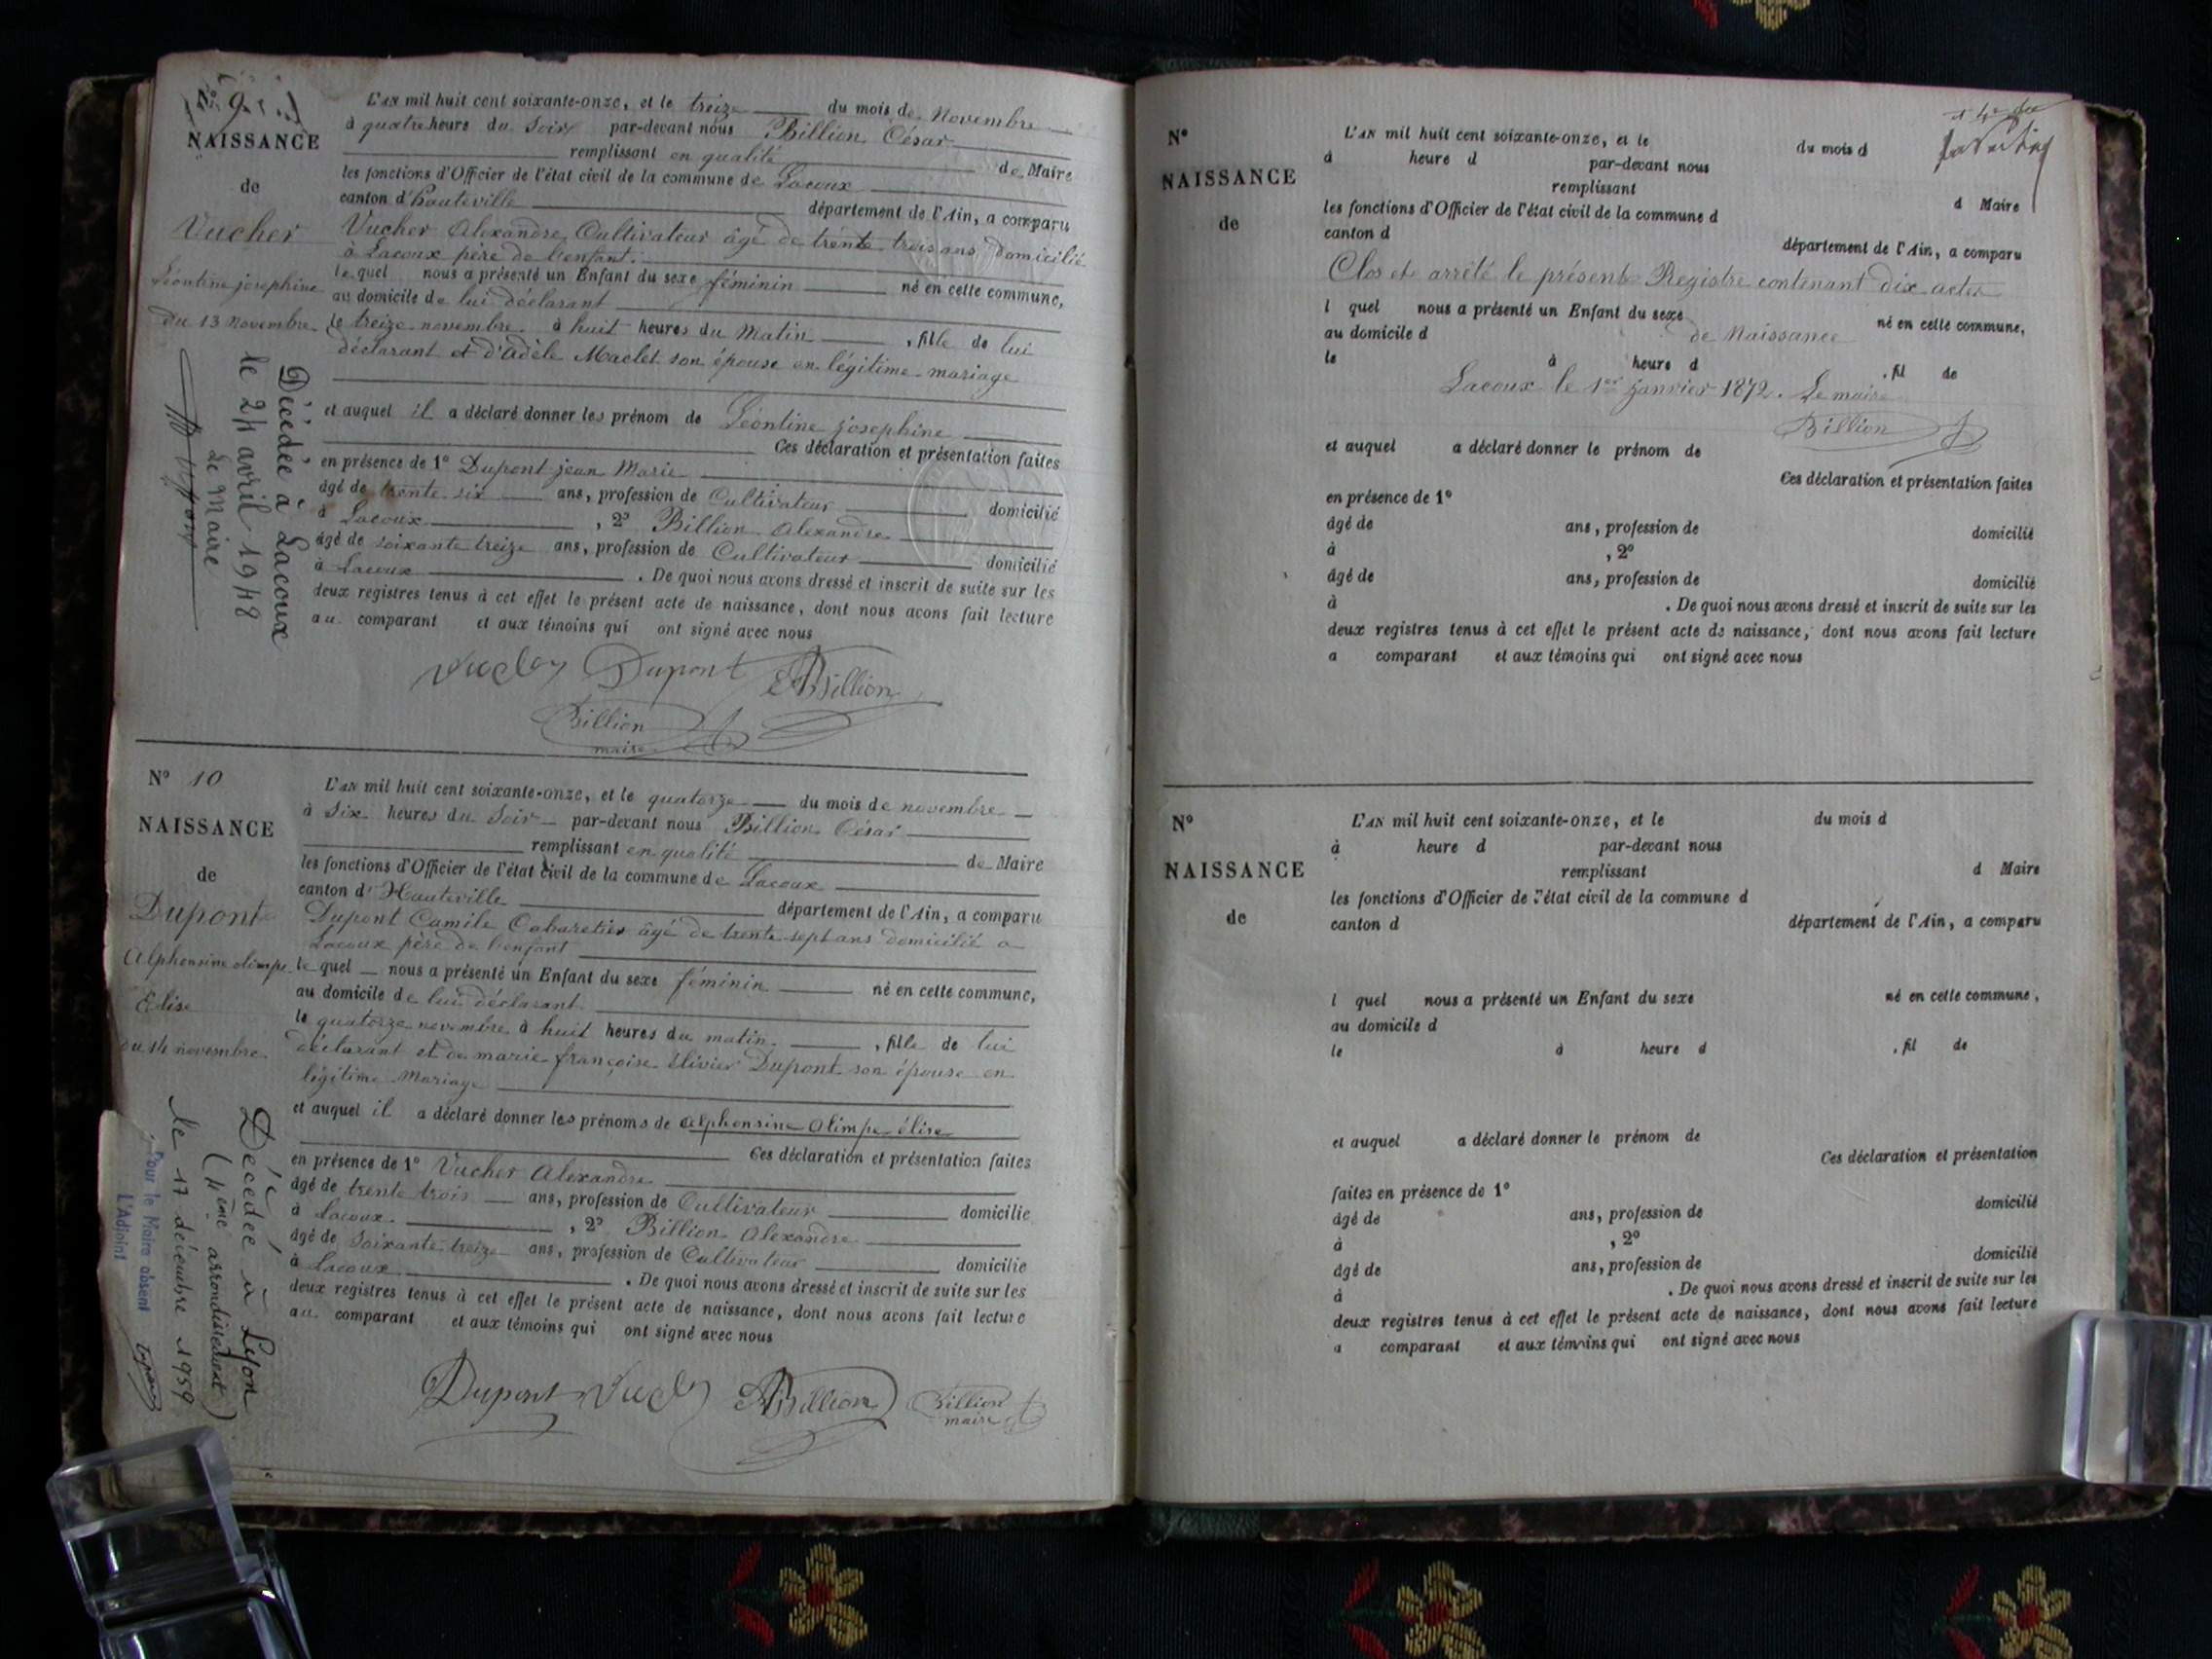 N° 9
NAISSANCE
de
Vucher
Léontine josephine
du 13 Novembre
L'AN mil huit cent soixante-onze, et le treize du mois de Novembre
à quatre heures du Soir par-devant nous Billion César
remplissant en qualité de Maire
les fonctions d'Officier de l'état civil de la commune de Lacoux
canton d'hauteville département de l'Ain, a comparu
Vucher Alexandre Cultivateur âgé de trente trois ans domicilié
à Lacoux père de l'enfant.
le quel nous a présenté un Enfant du sexe féminin né en cette commune,
au domicile de lui déclarant
le treize novembre à huit heures du Matin , fille de lui
déclarant et d'Adèle Maclet son épouse en légitime mariage
et auquel il a déclaré donner les prénom de Léontine josephine
Ces déclaration et présentation faites
en présence de 1° Dupont jean Marie
âgé de trente six ans, profession de Cultivateur domicilié
à Lacoux , 2° Billion Alexandre
âgé de soixante treize ans, profession de Cultivateur domicilié
à Lacoux . De quoi nous avons dressé et inscrit de suite sur les
deux registres tenus à cet effet le présent acte de naissance, dont nous avons fait lecture
au comparant et aux témoins qui ont signé avec nous
Dupont Billion
Billion
maire
Décédée à Lacoux
le 24 avril 1948
Le Maire
N° 10
NAISSANCE
de
Dupont
Alphonsine olimpe
Elise
du 14 novembre
L'AN mil huit cent soixante-onze, et le quatorze du mois de novembre
à Six heures du Soir par-devant nous Billion César
remplissant en qualité de Maire
les fonctions d'Officier de l'état civil de la commune de Lacoux
canton d'Hauteville département de l'Ain, a comparu
Dupont Camile Cabaretier âgé de trente sept ans domicilié a
Lacoux père de l'enfant
le quel nous a présenté un Enfant du sexe féminin né en cette commune,
au domicile de lui déclarant
le quatorze novembre à huit heures du matin , fille de lui
déclarant et de marie françoise Dupont son épouse en
légitime Mariage
et auquel il a déclaré donner les prénoms de alphonsine olimpe élise
Ces déclaration et présentation faites
en présence de 1° Vucher Alexandre
âgé de trente trois ans, profession de Cultivateur domicilié
à Lacoux , 2° Billion Alexandre
âgé de Soixante treize ans, profession de Cultivateur domicilié
à Lacoux . De quoi nous avons dressé et inscrit de suite sur les
deux registres tenus à cet effet le présent acte de naissance, dont nous avons fait lecture
au comparant et aux témoins qui ont signé avec nous
Dupont Billion Billion
maire
Décédée à Lyon
(4ème arrondissement)
le 17 décembre 1959
Pour le Maire absent
L'Adjoint
N°
NAISSANCE
de
L'AN mil huit cent soixante-onze, et le du mois d
à heure d par-devant nous
remplissant d Maire
les fonctions d'Officier de l'état civil de la commune d
canton d département de l'Ain, a comparu
Clos et arrêté le présent Registre contenant dix actes
l quel nous a présenté un Enfant du sexe né en cette commune,
au domicile d de Naissance
le à heure d , fil de
Lacoux le 1er janvier 1872. Le maire
Billion
et auquel a déclaré donner le prénom de
Ces déclaration et présentation faites
en présence de 1°
âgé de ans, profession de domicilié
à , 2°
âgé de ans, profession de domicilié
à . De quoi nous avons dressé et inscrit de suite sur les
deux registres tenus à cet effet le présent acte de naissance, dont nous avons fait lecture
a comparant et aux témoins qui ont signé avec nous
N°
NAISSANCE
de
L'AN mil huit cent soixante-onze, et le du mois d
à heure d par-devant nous
remplissant d Maire
les fonctions d'Officier de l'état civil de la commune d
canton d département de l'Ain, a comparu
l quel nous a présenté un Enfant du sexe né en cette commune,
au domicile d
le à heure d , fil de
et auquel a déclaré donner le prénom de
Ces déclaration et présentation
faites en présence de 1°
âgé de ans, profession de domicilié
à , 2°
âgé de ans, profession de domicilié
à . De quoi nous avons dressé et inscrit de suite sur les
deux registres tenus à cet effet le présent acte de naissance, dont nous avons fait lecture
a comparant et aux témoins qui ont signé avec nous